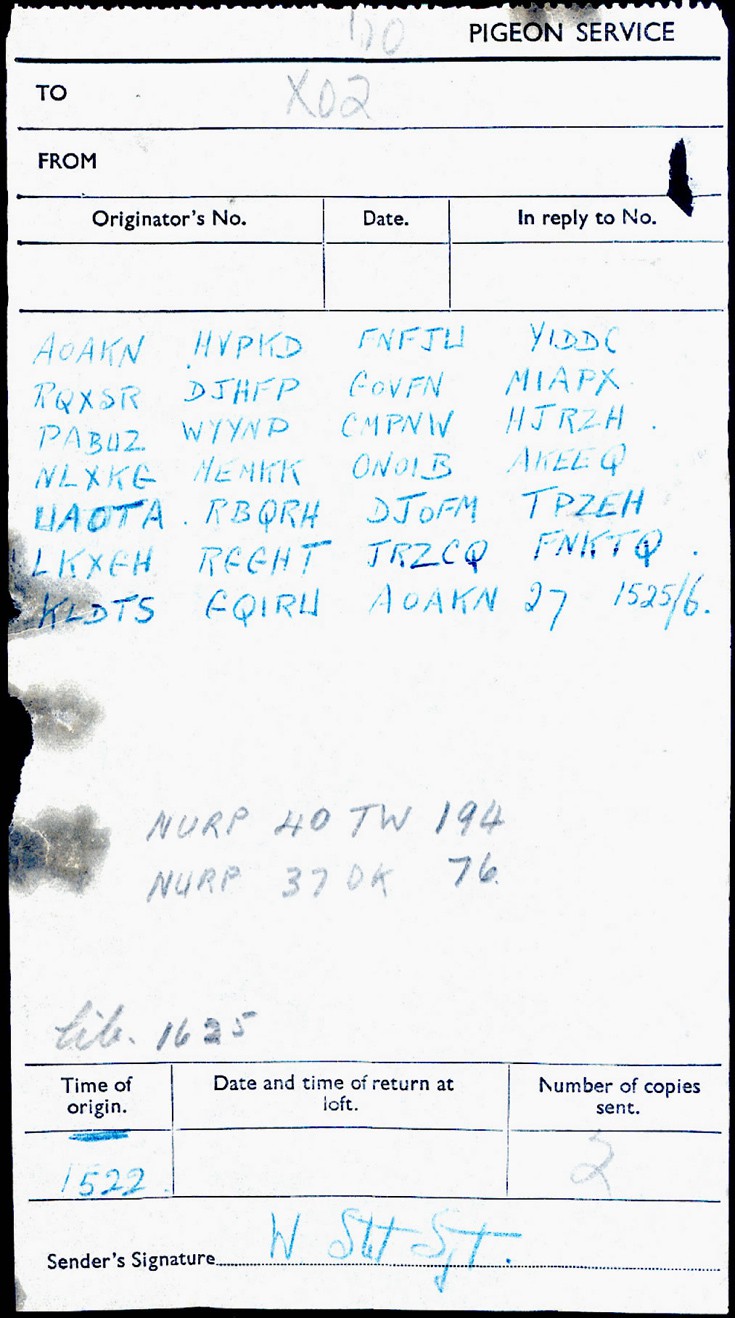 PIGEON SERVICE
TO X02
FROM
Originator's No. Date. In reply to No.
AOAKN HVPKD FNFJU YIDDC
RQXSR DJHFP GOVFN MIAPX
PABUZ WYYNP CMPNW HJRZH .
NLXKG MEMKK ONOIB AKEEQ
UAOTA . RBQRH DJOFM TPZEH
LKXGH RGGHT JRZCQ FNKTQ .
KLDTS GQIRU AOAKN 27 1525/6.
NURP 40 TW 194
NURP 37 OK 76
Lib. 1625
Time of origin. Date and time of return at loft. Number of copies sent.
1522 2
Sender's Signature W Stot Sjt.